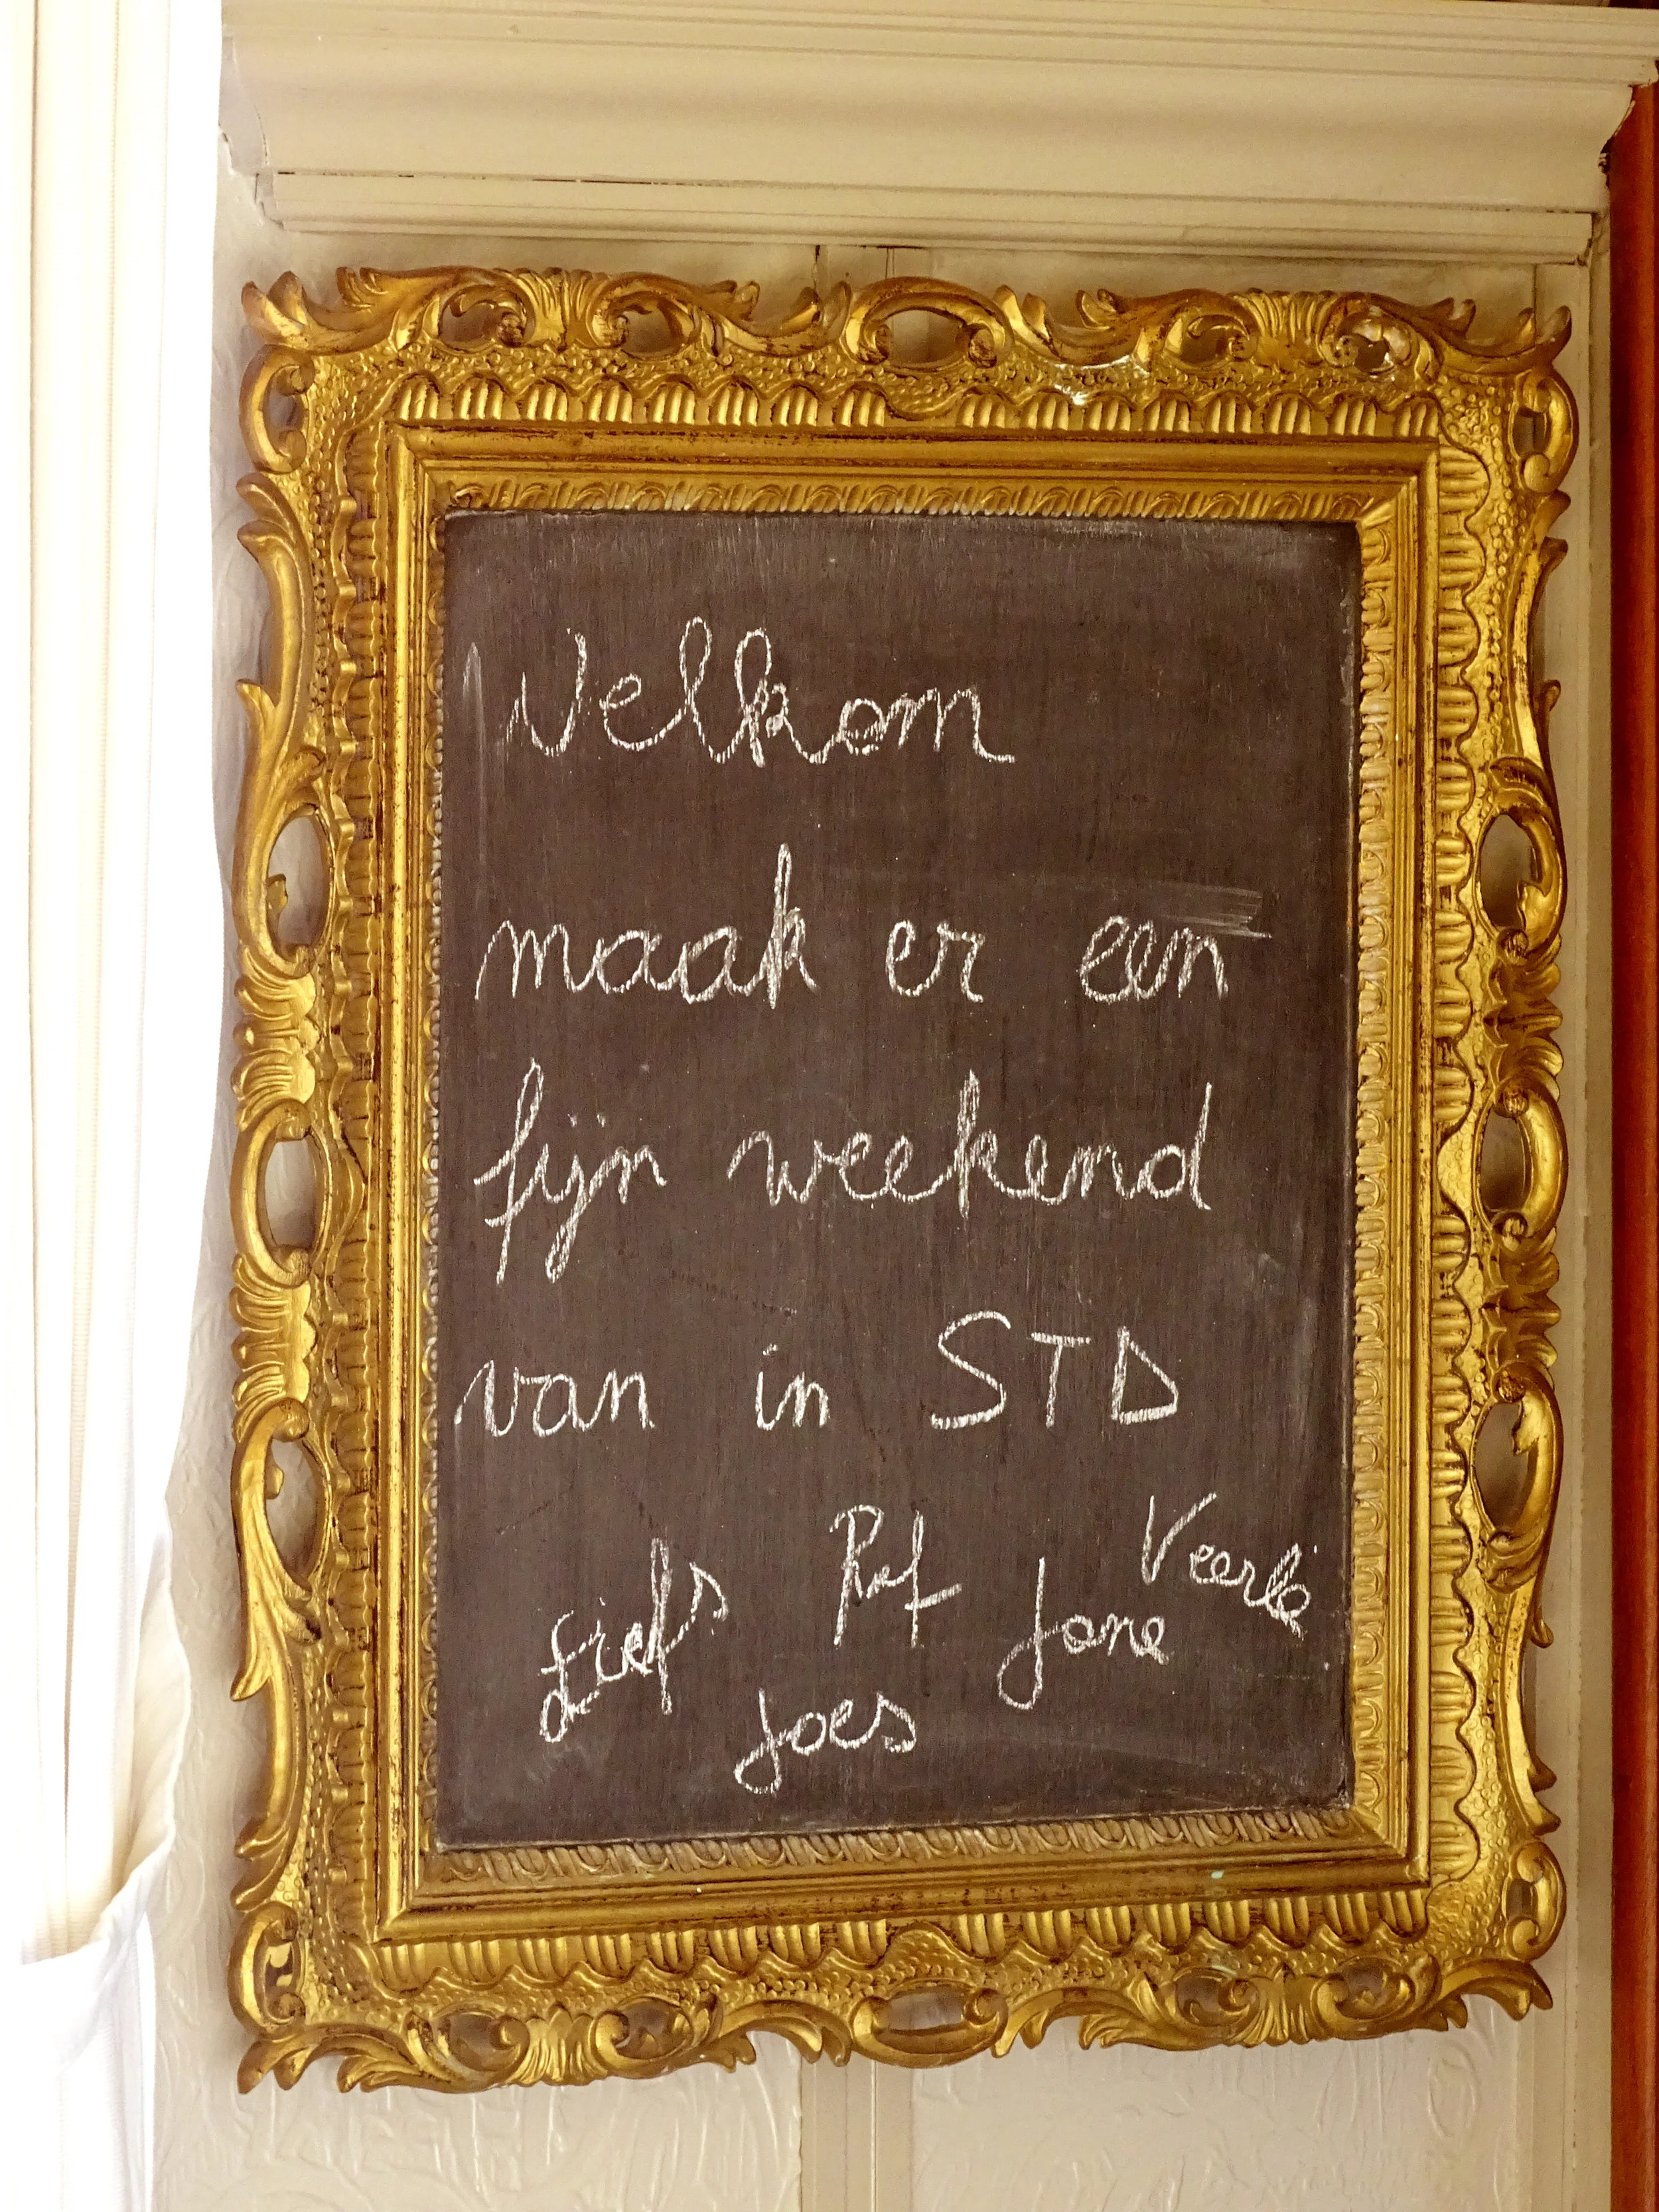 Welkom
maak er een
fijn weekend
van in STD
Liefs Raf Jane Veerle
Joes